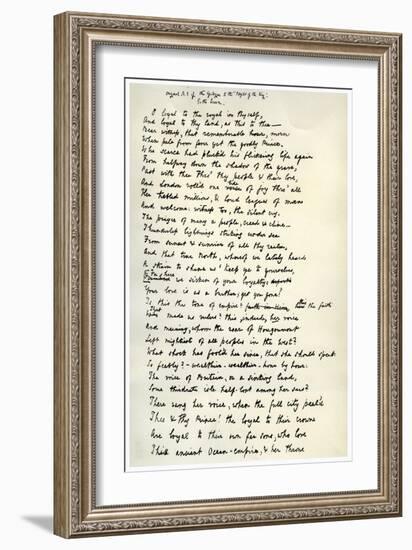 Original M.S. of the Epilogue to the "Idylls of the King."
To the Queen.
O loyal to the royal in thyself,
And loyal to thy land, as this to thee—
Bear witness, that rememberable hour, morn
When pale from fever yet the goodly Prince,
Who scarce had pluck'd his flickering life again
From halfway down the shadow of the grave,
Past with thee thro' thy people & their love,
And London roll'd one tide of joy thro' all
Her trebled millions, & loud leagues of man
And welcome: witness too, the silent cry,
The prayer of many a people, creed & clime—
Thunderless lightnings striking under sea
From sunset & sunrise of all thy realm,
And that true North, whereof we lately heard
A strain to shame us! keep ye to yourselves,
we sicken of your loyalty,
Your love is as a brother, get you gone!
Is this the tone of empire? here the faith
That made us rulers? this indeed, her voice
And meaning, whom the roar of Hougoumont
Left mightiest of all peoples in the west?
What shock has fool'd her since, that she should speak
So feebly? — wealthier — wealthier — hour by hour:
The voice of Britain, or a sinking land,
Some thirdrate isle half-lost among her seas?
There rang her voice, when the full city peal'd
Thee & thy Prince! the loyal to their crown
Are loyal to their own far sons, who love
ancient Ocean-empire, & her throne